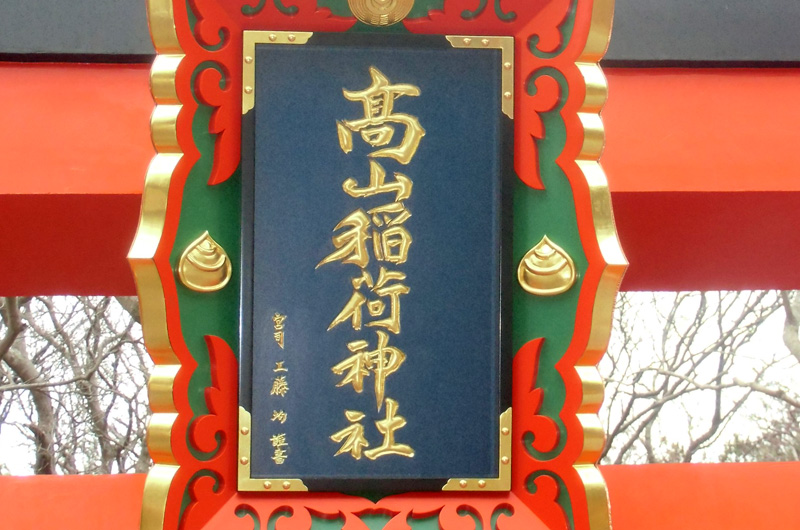 髙山稲荷神社
宮司 工藤 均 謹書